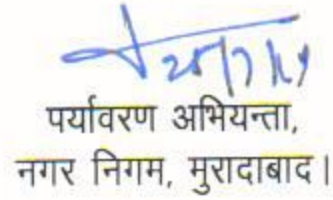 पर्यावरण अभियन्ता,
नगर निगम, मुरादाबाद।